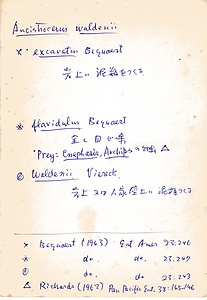 Ancistrocerus waldenii
× excavatus Bequaert
岩上に泥巣をつくる
※ flavidulus Bequaert
全く同じ
Prey: Anephasia, Archips △
◎ Waldenii Viereck
岩上又は人家壁上に泥巣つくる
× Bequaert (1943) Ent. Amer 23:246
※ do. do. 23:249
◎ do. do. 23.243
△ Richards (1962) Pan Pacific Ent. 38: